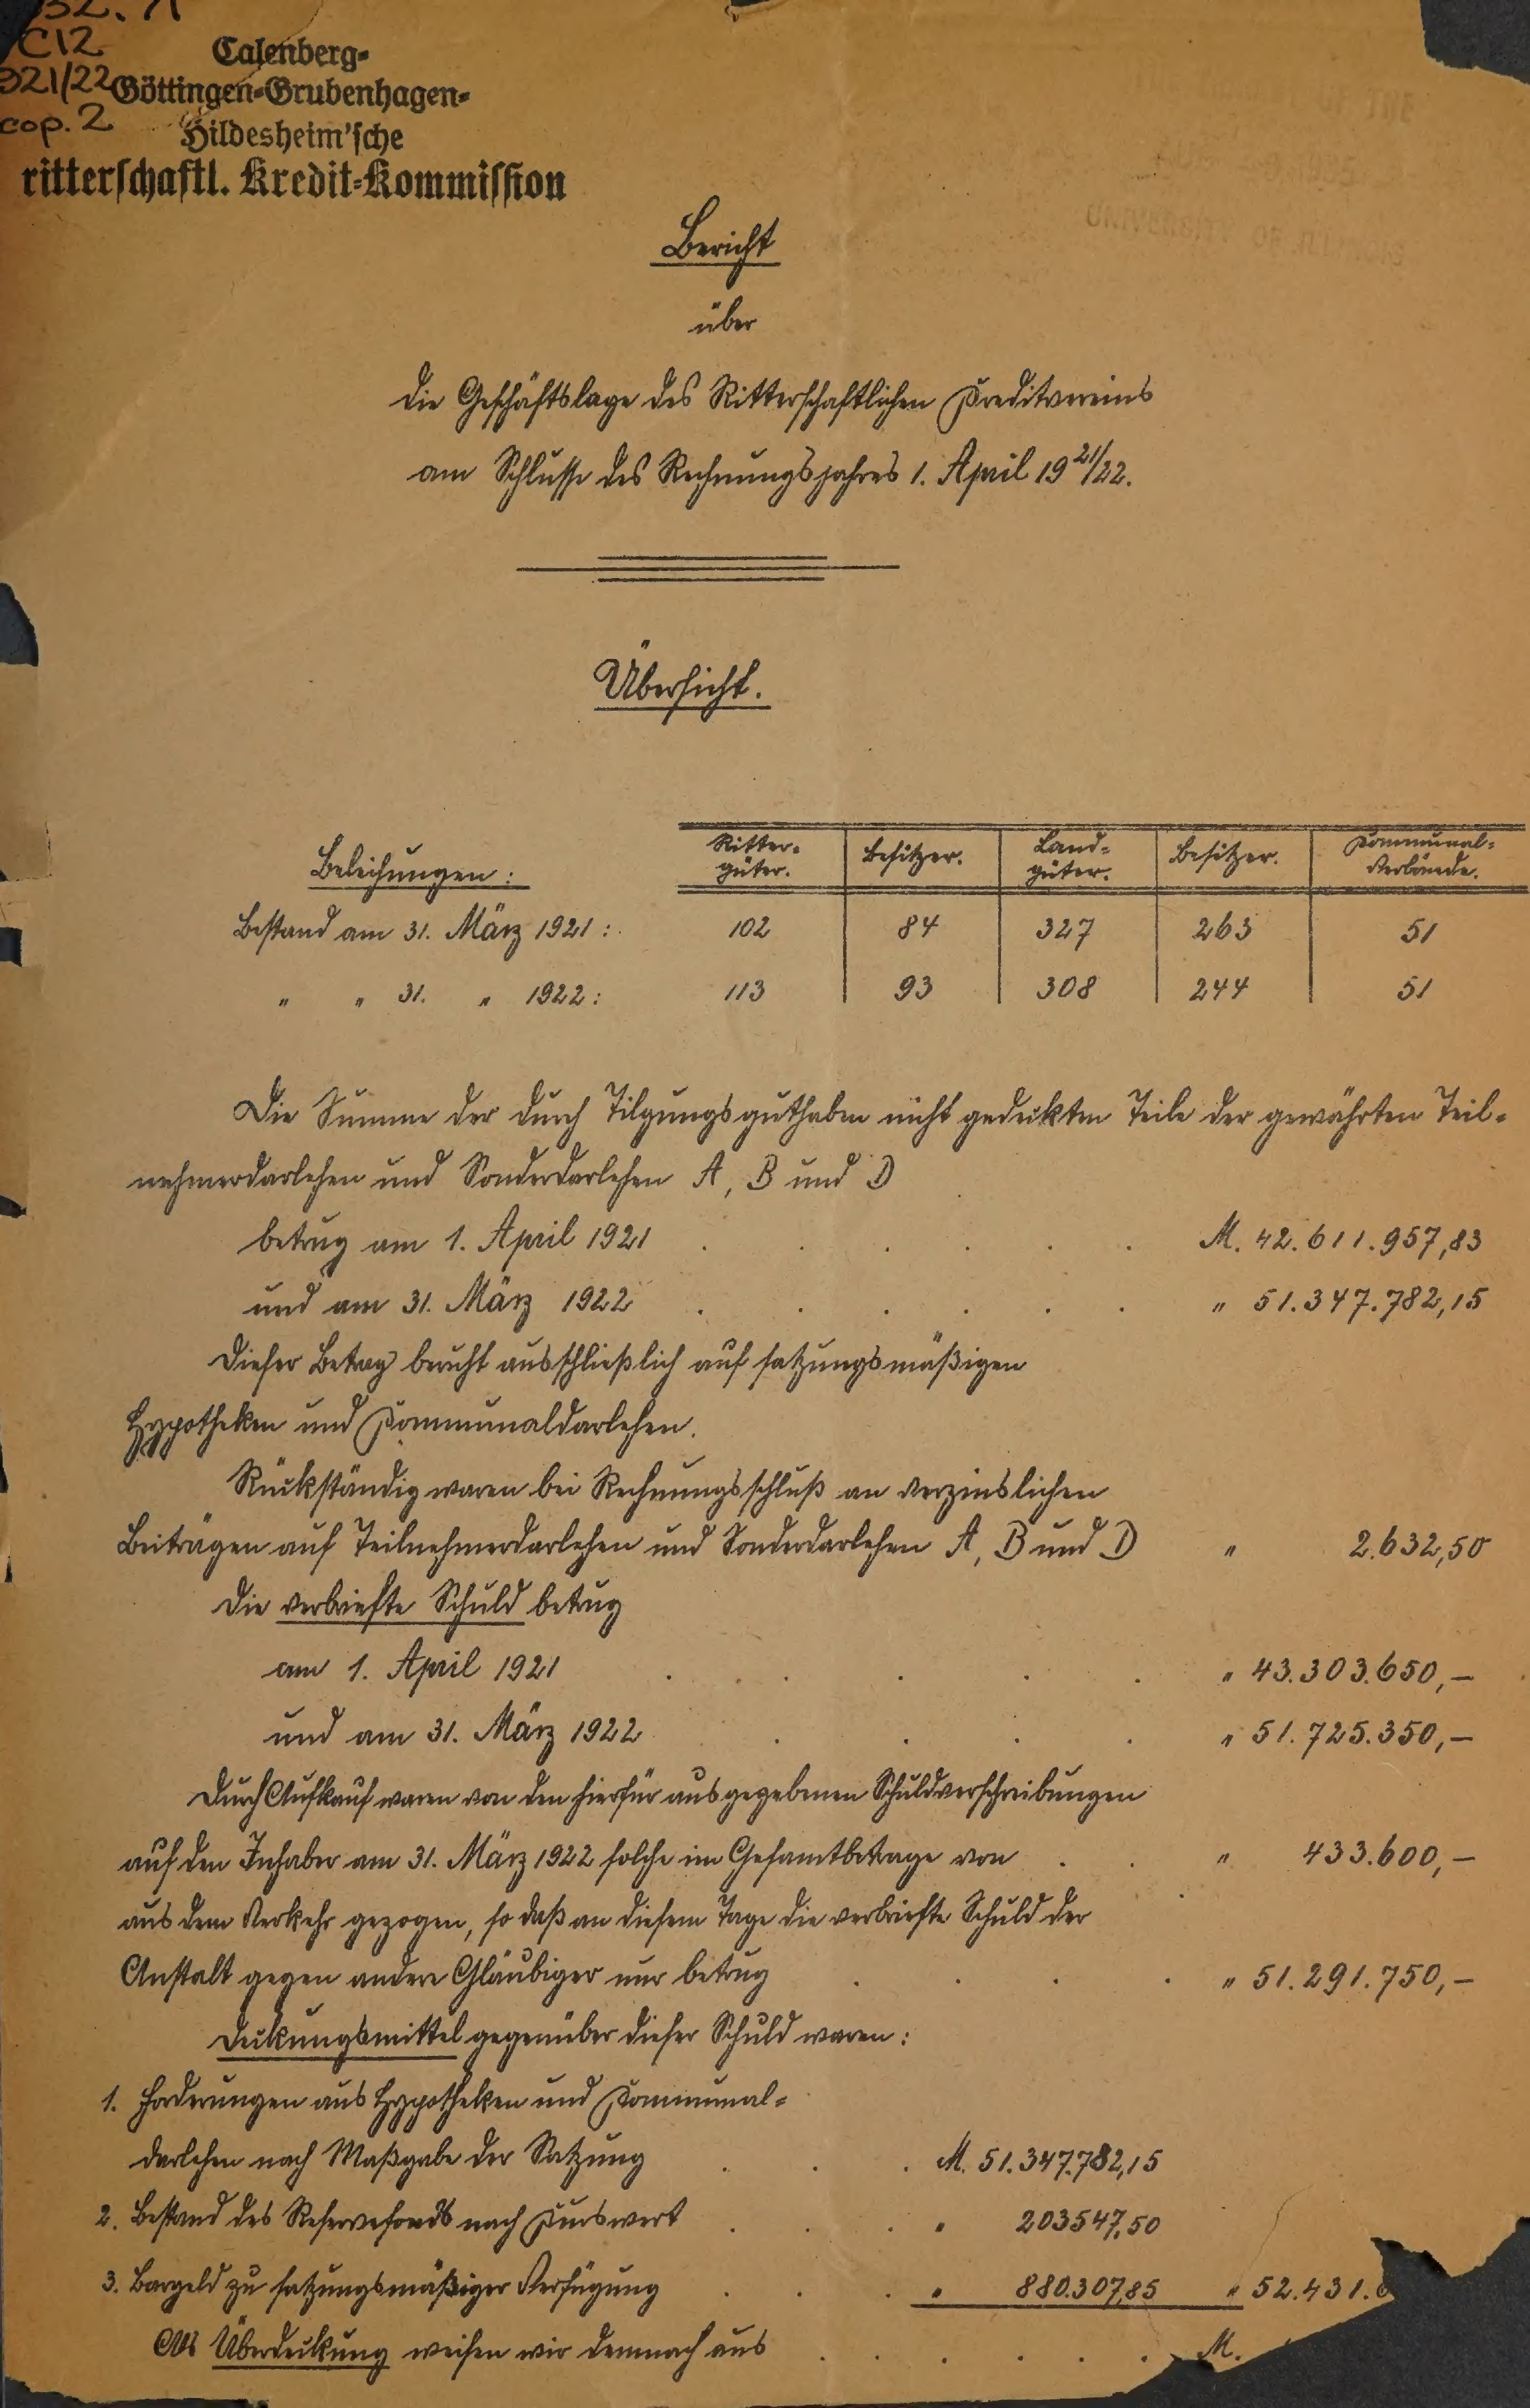 32. A
C12
921/22
cop. 2
Calenberg-
Göttingen-Grubenhagen-
Hildesheim'sche
ritterschaftl. Kredit-Kommission
Bericht
über
die Geschäftslage des Ritterschaftlichen Kreditvereins
am Schlusse des Rechnungsjahres 1. April 1921/22.
Übersicht.
Beleihungen: Ritter-güter. Besitzer. Land-güter. Besitzer. Kommunal-Verbände.
Bestand am 31. März 1921: 102 84 327 263 51
" " 31. " 1922: 113 93 308 244 51
Die Summe der durch Tilgungsguthaben nicht gedeckten Teile der gewährten Teil-
nehmerdarlehen und Sonderdarlehen A, B und D
betrug am 1. April 1921 . . . . . . M. 42.611.957,83
und am 31. März 1922 . . . . . . " 51.347.782,15
Dieser Betrag beruht ausschließlich auf satzungsmäßigen
Hypotheken und Kommunaldarlehen.
Rückständig waren bei Rechnungsschluß an verzinslichen
Beiträgen auf Teilnehmerdarlehen und Sonderdarlehen A, B und D " 2.632,50
Die verbriefte Schuld betrug
am 1. April 1921 . . . . . " 43.303.650,—
und am 31. März 1922 . . . . " 51.725.350,—
Durch Aufkauf waren von den hierfür ausgegebenen Schuldverschreibungen
auf den Inhaber am 31. März 1922 solche im Gesamtbetrage von . . " 433.600,—
aus dem Verkehr gezogen, so daß an diesem Tage die verbriefte Schuld der
Anstalt gegen andere Gläubiger nur betrug . . . . " 51.291.750,—
Deckungsmittel gegenüber dieser Schuld waren:
1. Forderungen aus Hypotheken und Kommunal-
darlehen nach Maßgabe der Satzung . . . M. 51.347.782,15
2. Bestand des Reservefonds nach Kurswert . . . " 203547,50
3. Bargeld zu satzungsmäßiger Verfügung . . . " 880.307,85 " 52.431.6
Als Überdeckung weisen wir demnach aus . . . . . . M.